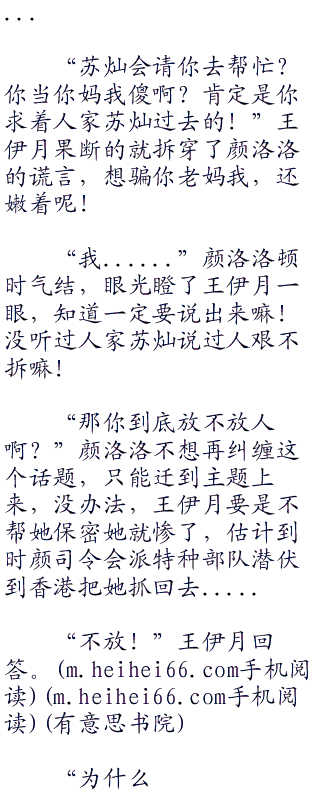 ...
“苏灿会请你去帮忙？
你当你妈我傻啊？肯定是你
求着人家苏灿过去的！”王
伊月果断的就拆穿了颜洛洛
的谎言，想骗你老妈我，还
嫩着呢！
“我......”颜洛洛顿
时气结，眼光瞪了王伊月一
眼，知道一定要说出来嘛！
没听过人家苏灿说过人艰不
拆嘛！
“那你到底放不放人
啊？”颜洛洛不想再纠缠这
个话题，只能迁到主题上
来，没办法，王伊月要是不
帮她保密她就惨了，估计到
时颜司令会派特种部队潜伏
到香港把她抓回去.....
“不放！”王伊月回
答。(m.heihei66.com手机阅
读)(m.heihei66.com手机阅
读)(有意思书院)
“为什么